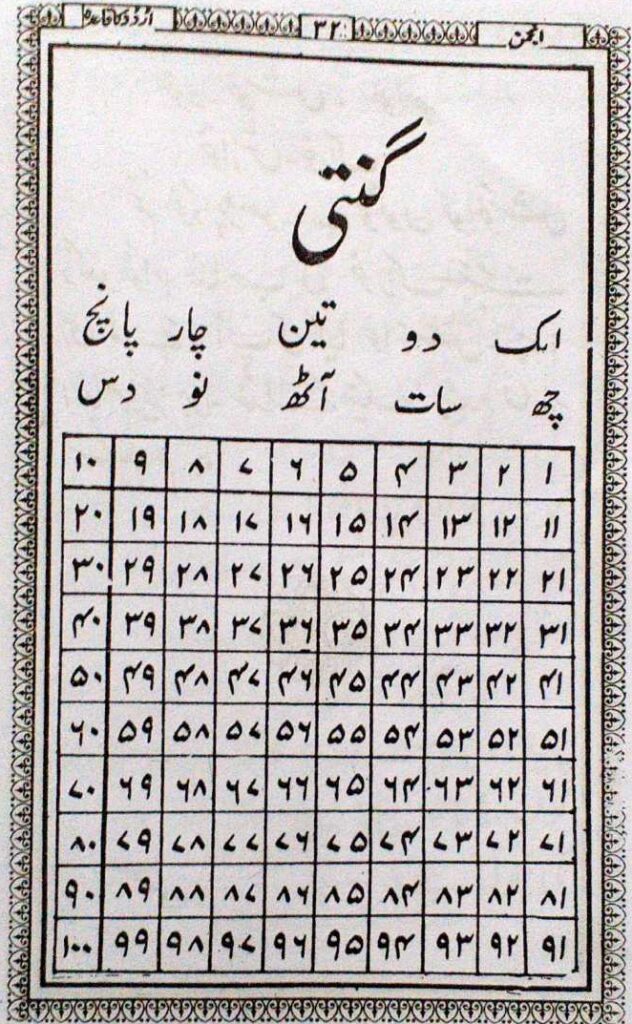 انجمن ۳۲ اردو کا قاعدہ
گنتی
ایک دو تین چار پانچ
چھ سات آٹھ نو دس
۱ ۲ ۳ ۴ ۵ ۶ ۷ ۸ ۹ ۱۰
۱۱ ۱۲ ۱۳ ۱۴ ۱۵ ۱۶ ۱۷ ۱۸ ۱۹ ۲۰
۲۱ ۲۲ ۲۳ ۲۴ ۲۵ ۲۶ ۲۷ ۲۸ ۲۹ ۳۰
۳۱ ۳۲ ۳۳ ۳۴ ۳۵ ۳۶ ۳۷ ۳۸ ۳۹ ۴۰
۴۱ ۴۲ ۴۳ ۴۴ ۴۵ ۴۶ ۴۷ ۴۸ ۴۹ ۵۰
۵۱ ۵۲ ۵۳ ۵۴ ۵۵ ۵۶ ۵۷ ۵۸ ۵۹ ۶۰
۶۱ ۶۲ ۶۳ ۶۴ ۶۵ ۶۶ ۶۷ ۶۸ ۶۹ ۷۰
۷۱ ۷۲ ۷۳ ۷۴ ۷۵ ۷۶ ۷۷ ۷۸ ۷۹ ۸۰
۸۱ ۸۲ ۸۳ ۸۴ ۸۵ ۸۶ ۸۷ ۸۸ ۸۹ ۹۰
۹۱ ۹۲ ۹۳ ۹۴ ۹۵ ۹۶ ۹۷ ۹۸ ۹۹ ۱۰۰